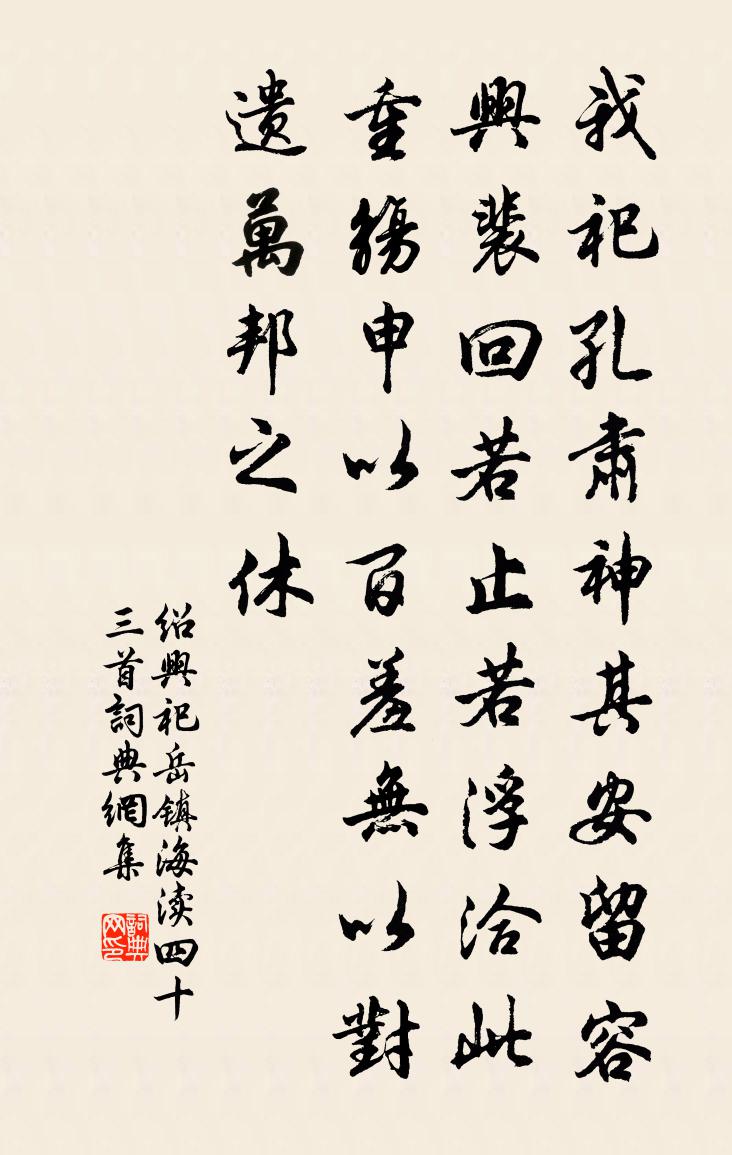 我祀孔肅神其安留容
興裴回若止若浮洽此
重觴申以百羞無以對
遺萬邦之休
绍興祀岳鎮海渎四十
三首詞典網集
詞典
网印